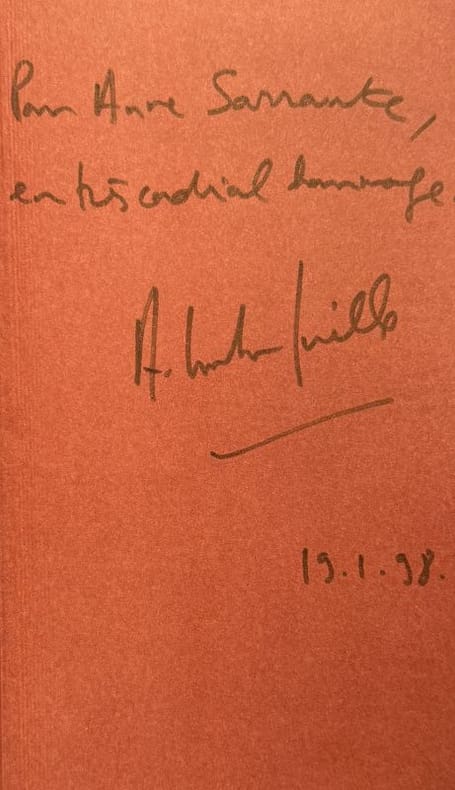 Pour Anne Sarraute,
en très cordial hommage.
A.
19.1.98.